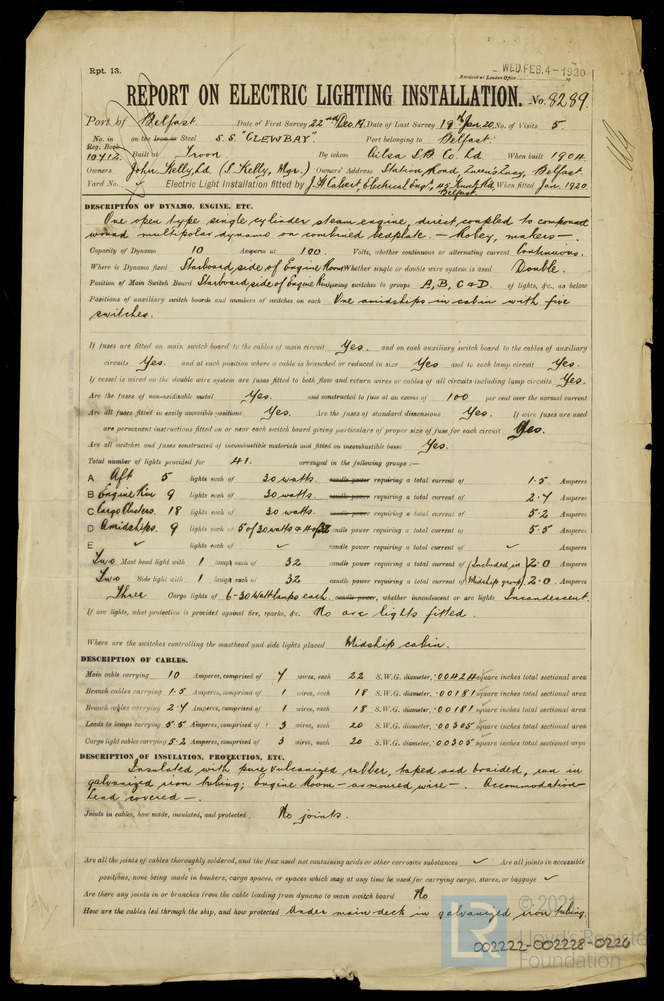 Rpt. 13.
WED. FEB. 4 - 1920
Received at London Office
REPORT ON ELECTRIC LIGHTING INSTALLATION. No. 8289.
Port of Belfast Date of First Survey 22nd Dec. 19. Date of Last Survey 19th Jan. 20. No. of Visits 5.
No. in on the Iron or Steel S.S. "CLEWBAY". Port belonging to Belfast.
Reg. Book
10412. Built at Troon By whom Ailsa S.B. Co. Ld When built 1904.
Owners John Kelly, Ld. (S. Kelly, Mgr.) Owners' Address Station Road, Queen's Quay, Belfast.
Yard No. Electric Light Installation fitted by J. H. Calvert, Electrical Engr., Belfast When fitted Jan. 1920.
DESCRIPTION OF DYNAMO, ENGINE, ETC.
One open type single cylinder steam engine, direct coupled to compound
wound multipolar dynamo on combined bedplate. — Robey, makers —.
Capacity of Dynamo 10 Amperes at 100. Volts, whether continuous or alternating current Continuous.
Where is Dynamo fixed Starboard side of Engine Room Whether single or double wire system is used Double.
Position of Main Switch Board Starboard side of Engine Rm having switches to groups A, B, C & D. of lights, &c., as below
Positions of auxiliary switch boards and numbers of switches on each One amidships in cabin with five
switches.
If fuses are fitted on main switch board to the cables of main circuit Yes. and on each auxiliary switch board to the cables of auxiliary
circuits Yes. and at each position where a cable is branched or reduced in size Yes and to each lamp circuit Yes.
If vessel is wired on the double wire system are fuses fitted to both flow and return wires or cables of all circuits including lamp circuits Yes.
Are the fuses of non-oxidizable metal Yes. and constructed to fuse at an excess of 100 per cent over the normal current
Are all fuses fitted in easily accessible positions Yes. Are the fuses of standard dimensions Yes. If wire fuses are used
are permanent instructions fitted on or near each switch board giving particulars of proper size of fuse for each circuit Yes.
Are all switches and fuses constructed of incombustible materials and fitted on incombustible bases Yes.
Total number of lights provided for 41. arranged in the following groups :—
A Aft 5 lights each of 30 watts candle power requiring a total current of 1.5 Amperes
B Engine Rm 9 lights each of 30 watts. candle power requiring a total current of 2.7 Amperes
C Cargo Clusters. 18 lights each of 30 watts. candle power requiring a total current of 5.2 Amperes
D Amidships. 9 lights each of 5 of 30 watts & 4 of 32 candle power requiring a total current of 5.5 Amperes
E ✓ lights each of ✓ candle power requiring a total current of ✓ Amperes
Two Mast head light with 1 lamps each of 32 candle power requiring a total current of (Included in 2.0 Amperes
Two Side light with 1 lamps each of 32 candle power requiring a total current of Midship group) 2.0 Amperes
Three Cargo lights of 6-30 Watt lamps each. candle power, whether incandescent or arc lights Incandescent.
If arc lights, what protection is provided against fire, sparks, &c. No arc lights fitted.
Where are the switches controlling the masthead and side lights placed Midship cabin.
DESCRIPTION OF CABLES.
Main cable carrying 10 Amperes, comprised of 7 wires, each 22 S.W.G. diameter, .00424 square inches total sectional area
Branch cables carrying 1.5 Amperes, comprised of 1 wires, each 18 S.W.G. diameter, .00181 square inches total sectional area
Branch cables carrying 2.7 Amperes, comprised of 1 wires, each 18 S.W.G. diameter, .00181 square inches total sectional area
Leads to lamps carrying 5.5 Amperes, comprised of 3 wires, each 20 S.W.G. diameter, .00305 square inches total sectional area
Cargo light cables carrying 5.2 Amperes, comprised of 3 wires, each 20 S.W.G. diameter, .00305 square inches total sectional area
DESCRIPTION OF INSULATION, PROTECTION, ETC.
Insulated with pure vulcanized rubber, taped and braided, run in
galvanized iron tubing; Engine Room — armoured wire —. Accommodation —
Lead covered —.
Joints in cables, how made, insulated, and protected No joints.
Are all the joints of cables thoroughly soldered, and the flux used not containing acids or other corrosive substances ✓ Are all joints in accessible
positions, none being made in bunkers, cargo spaces, or spaces which may at any time be used for carrying cargo, stores, or baggage ✓
Are there any joints in or branches from the cable leading from dynamo to main switch board No
How are the cables led through the ship, and how protected Under main deck in galvanized iron tubing.
© 2021
LR Lloyd's Register
Foundation
002222-002228-0226